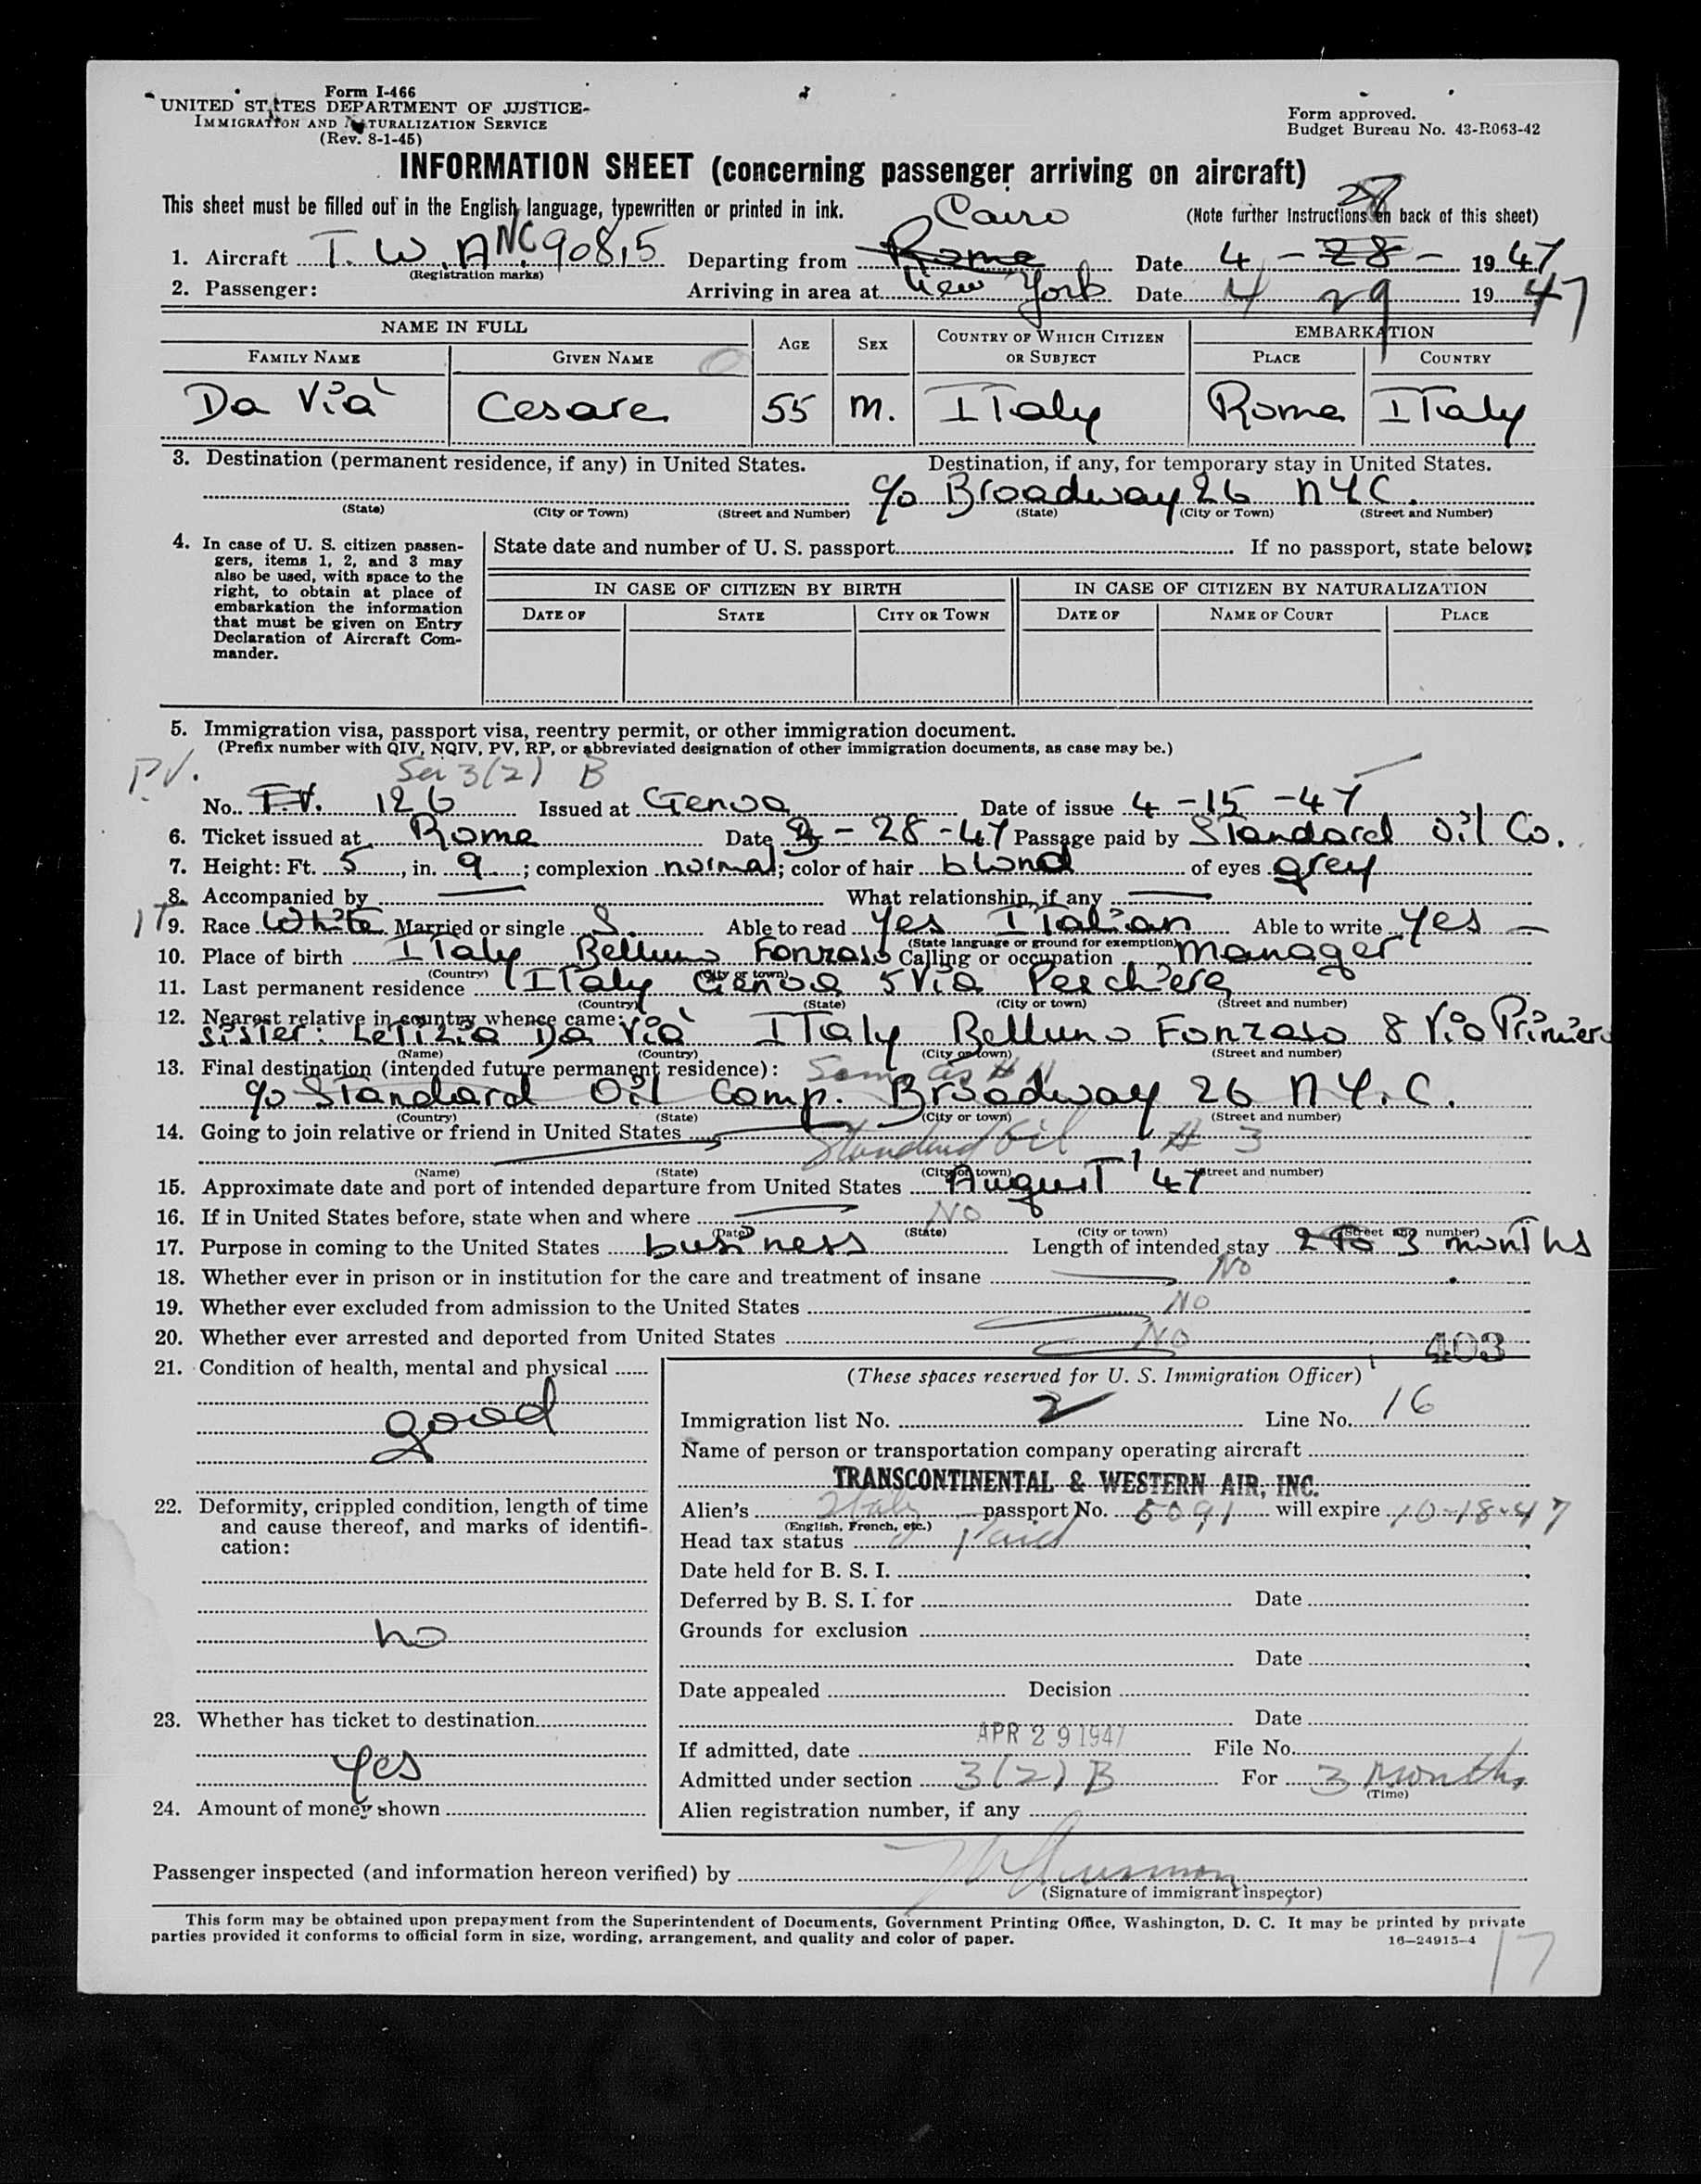 Form I-466
UNITED STATES DEPARTMENT OF JUSTICE
IMMIGRATION AND NATURALIZATION SERVICE
(Rev. 8-1-45)
Form approved.
Budget Bureau No. 43-R063-42
INFORMATION SHEET (concerning passenger arriving on aircraft)
This sheet must be filled out in the English language, typewritten or printed in ink.
(Note further Instructions on back of this sheet)
Cairo
1. Aircraft T.W.A NC 90815 Departing from Rome Date 4 - 28 - 1947
(Registration marks)
2. Passenger: Arriving in area at New York Date 4 29 1947
NAME IN FULL AGE SEX COUNTRY OF WHICH CITIZEN OR SUBJECT EMBARKATION
FAMILY NAME GIVEN NAME PLACE COUNTRY
Da Vià Cesare 55 M. Italy Rome Italy
3. Destination (permanent residence, if any) in United States. Destination, if any, for temporary stay in United States.
c/o Broadway 26 NYC.
(State) (City or Town) (Street and Number) (State) (City or Town) (Street and Number)
4. In case of U. S. citizen passengers, items 1, 2, and 3 may also be used, with space to the right, to obtain at place of embarkation the information that must be given on Entry Declaration of Aircraft Commander.
State date and number of U. S. passport If no passport, state below:
IN CASE OF CITIZEN BY BIRTH IN CASE OF CITIZEN BY NATURALIZATION
DATE OF STATE CITY OR TOWN DATE OF NAME OF COURT PLACE
5. Immigration visa, passport visa, reentry permit, or other immigration document.
(Prefix number with QIV, NQIV, PV, RP, or abbreviated designation of other immigration documents, as case may be.)
P.V. 3(2) B
No. 126 Issued at Genoa Date of issue 4-15-47
6. Ticket issued at Rome Date -28-47 Passage paid by Standard Oil Co.
7. Height: Ft. 5, in. 9; complexion normal; color of hair blond of eyes grey
8. Accompanied by What relationship, if any
IT 9. Race White Married or single S. Able to read yes Italian Able to write yes
(State language or ground for exemption)
10. Place of birth Italy Belluno Fonzaso Calling or occupation manager
(Country) (City or town)
11. Last permanent residence Italy Genoa 5 Via Peschiera
(Country) (State) (City or town) (Street and number)
12. Nearest relative in country whence came:
Sister: Letizia Da Vià Italy Belluno Fonzaso 8 Via Primiero
(Name) (Country) (City or town) (Street and number)
13. Final destination (intended future permanent residence): Same as #
c/o Standard Oil Comp. Broadway 26 N.Y.C.
(Country) (State) (City or town) (Street and number)
14. Going to join relative or friend in United States
Standard Oil # 3
(Name) (State) (City or town) (Street and number)
15. Approximate date and port of intended departure from United States August '47
16. If in United States before, state when and where No
(Date) (State) (City or town) (Street and number)
17. Purpose in coming to the United States business Length of intended stay 2 to 3 months
18. Whether ever in prison or in institution for the care and treatment of insane No
19. Whether ever excluded from admission to the United States No
20. Whether ever arrested and deported from United States No
403
21. Condition of health, mental and physical
good
22. Deformity, crippled condition, length of time and cause thereof, and marks of identification:
no
23. Whether has ticket to destination
yes
24. Amount of money shown
(These spaces reserved for U. S. Immigration Officer)
Immigration list No. 2 Line No. 16
Name of person or transportation company operating aircraft
TRANSCONTINENTAL & WESTERN AIR, INC.
Alien's Italy passport No. 6091 will expire 10-18-47
(English, French, etc.)
Head tax status Paid
Date held for B. S. I.
Deferred by B. S. I. for Date
Grounds for exclusion
Date
Date appealed Decision
Date
If admitted, date APR 29 1947 File No.
Admitted under section 3(2) B For 3 Months
(Time)
Alien registration number, if any
Passenger inspected (and information hereon verified) by
(Signature of immigrant inspector)
This form may be obtained upon prepayment from the Superintendent of Documents, Government Printing Office, Washington, D. C. It may be printed by private
parties provided it conforms to official form in size, wording, arrangement, and quality and color of paper.
16—24915-4
17